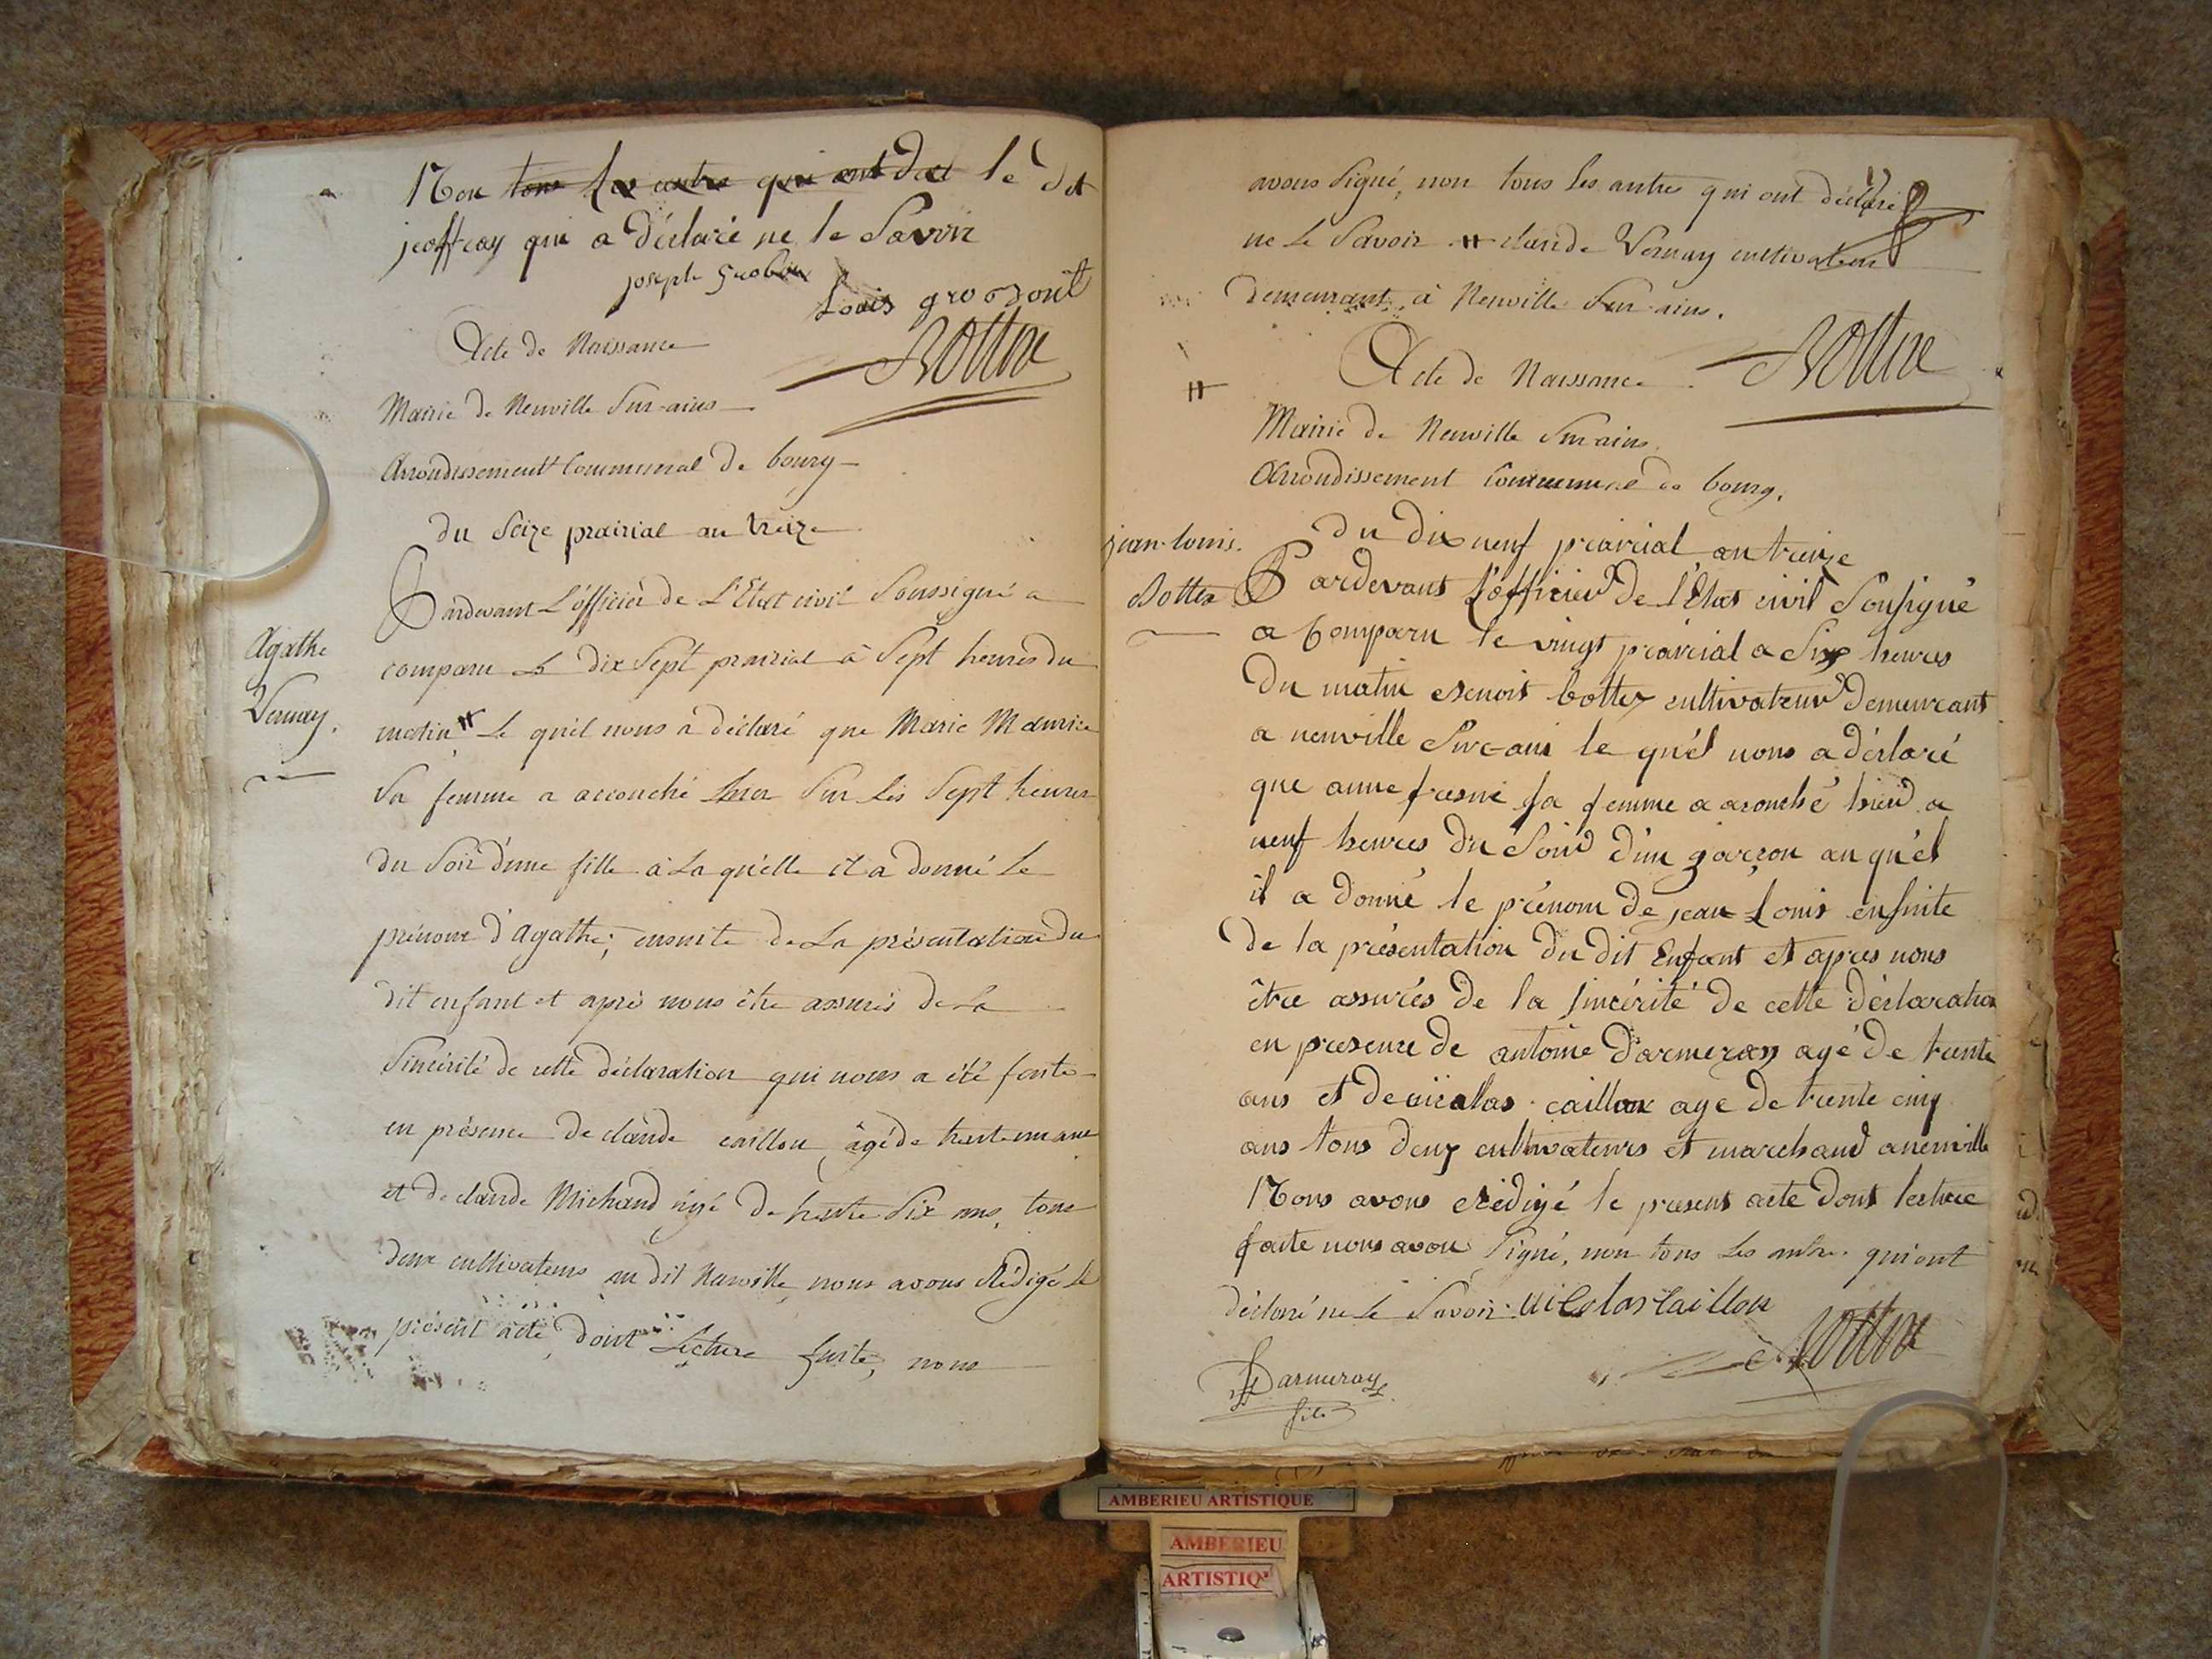 Non tous les autres qui ont dec le dit
jeoffray qui a déclaré ne le Savoir
joseph
Louis grosdout
Acte de Naissance
Mairie de Neuville Sur-ains
Arrondissement Communal de bourg
du Seize prairial an treize
Agathe
Vernay.
Pardevant L'officier de L'Etat civil Soussigné a
comparu Le dix Sept prairial à Sept heures du
matin # Le quél nous a déclaré que Marie Maurice
Sa femme a accouché hier Sur Les Sept heures
du Soir d'une fille à La quélle il a donné Le
prénom d'Agathe; ensuite de La présentation du
dit enfant et aprés nous être assurés de La
Sincérité de cette déclaration qui nous a été faite
en présence de claude caillou, âgé de trente un ans
et de claude Michaud âgé de trente Six ans, tous
deux cultivateurs au dit Neuville, nous avons Rédigé Le
présent acte, dont Lecture faite, nous
avons Signé, non tous Les autres qui ont déclaré
ne Le Savoir. # claude Vernay cultivateur
demeurant à Neuville Sur-ains.
#
Acte de Naissance
Mairie de Neuville Sur ains
Arrondissement Communal de bourg.
du dix neuf prairial an treize
jean-louis.
Bottex
Pardevant L'officier de l'Etat civil Sousigné
a Comparu le vingt prairial a Six heures
du matin benoit bottex cultivateur demeurant
a neuville Sur-ain le quél nous a déclaré
que anne sa femme a acouché hier a
neuf heures du Soir d'un garçon au quél
il a donné le prénom de jean Louis ensuite
de la présentation du dit Enfant et apres nous
être assurés de la sincérité de cette déclaration
en presence de antoine Darmeray agé de trente
ans et de nicolas caillou age de trente cinq
ans tous deux cultivateurs et marchand a neuville
Nous avons Rédigé le present acte dont lecture
faite nous avons Signé, non tous Les autres qui ont
déclaré ne Le Savoir. nicolas caillou
Darmeray
fils
AMBERIEU ARTISTIQUE
AMBERIEU
ARTISTIQ